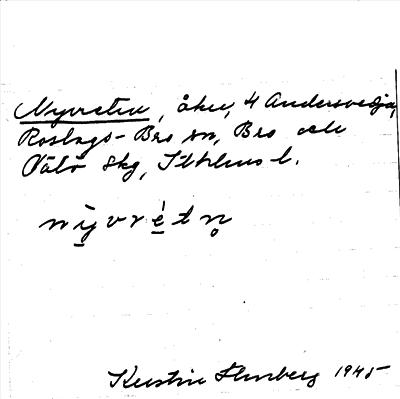 Nyvreten, åker, 4 Andersvedja,
Roslags-Bro sn, Bro och
Vätö skg, Sthlms l.
nyvretn
Kerstin 1945